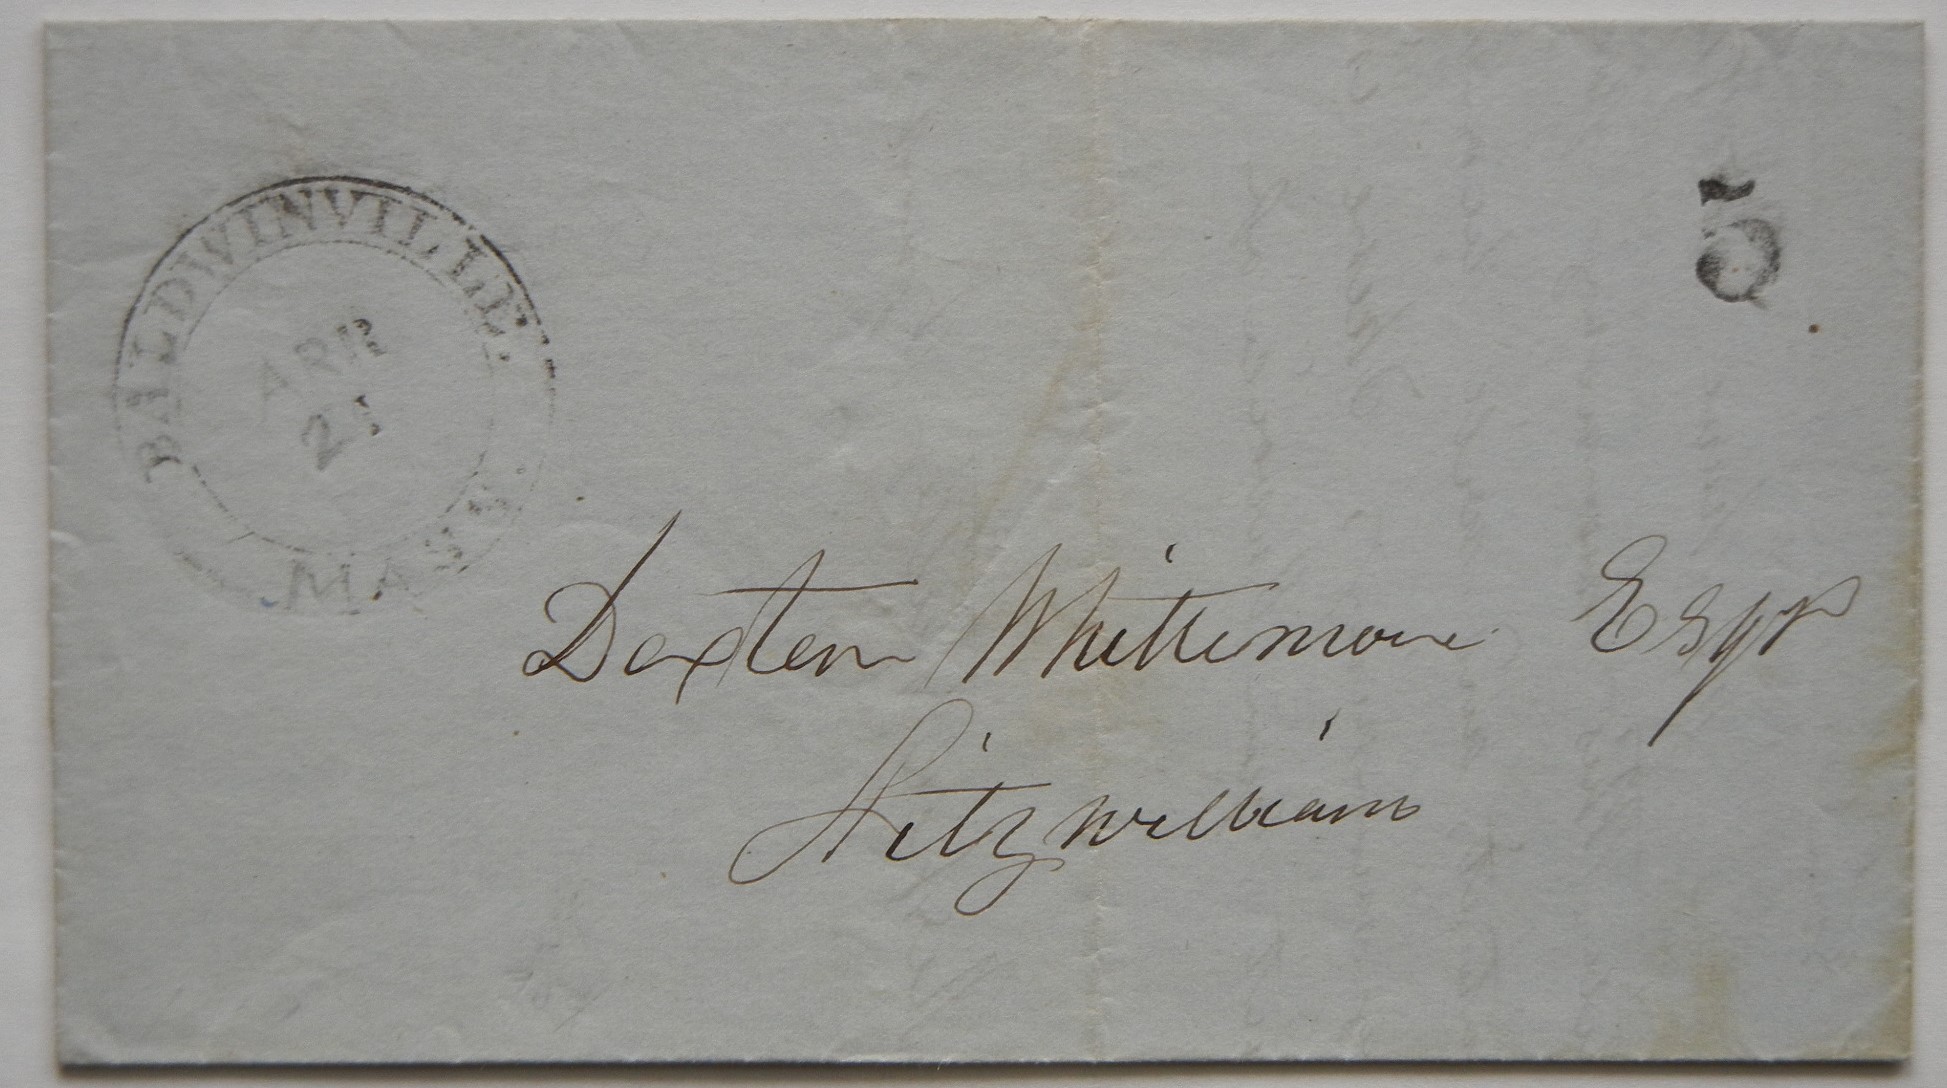 BALDWINVILLE.
MASS.
APR
21
5
Dexter Whittemore Esqr
Fitzwilliam